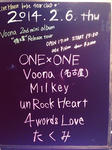 2014. 2. 6. thu
Voona 2nd mini album
Release tour
ONE×ONE
Voona (名古屋)
Milkey
un Rock Heart
4 words Love
たくみ